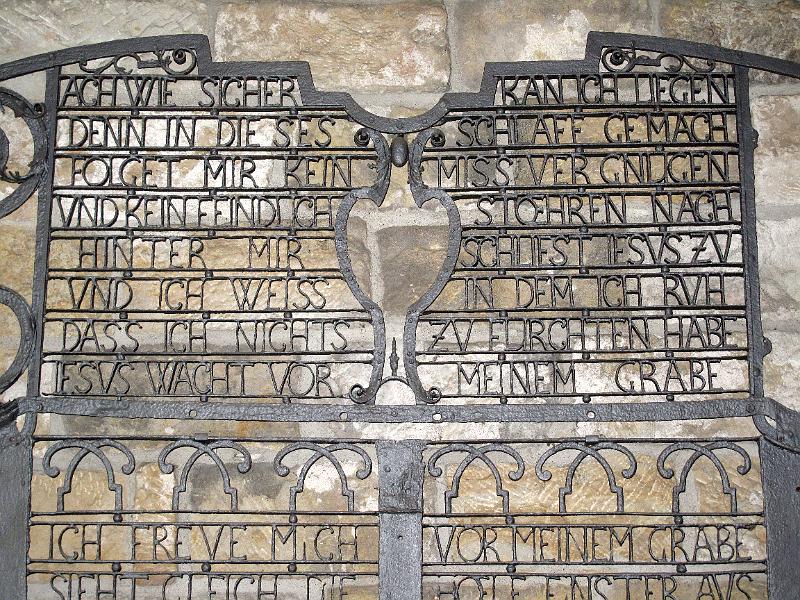 ACH WIE SICHER KAN ICH LIEGEN
DENN IN DIESES SCHLAFF GEMACH
FOLGET MIR KEIN MISSVERGNÜGEN
VND KEIN FEINDLICH STŒHREN NACH
HINTER MIR SCHLIEST IESVS ZU
VND ICH WEISS IN DEM ICH RVH
DASS ICH NICHTS ZV FÜRCHTEN HABE
IESVS WACHT VOR MEINEM GRABE
ICH FREVE MICH VOR MEINEM GRABE
SIEHT GLEICH DIE HOELE FINSTER AVS